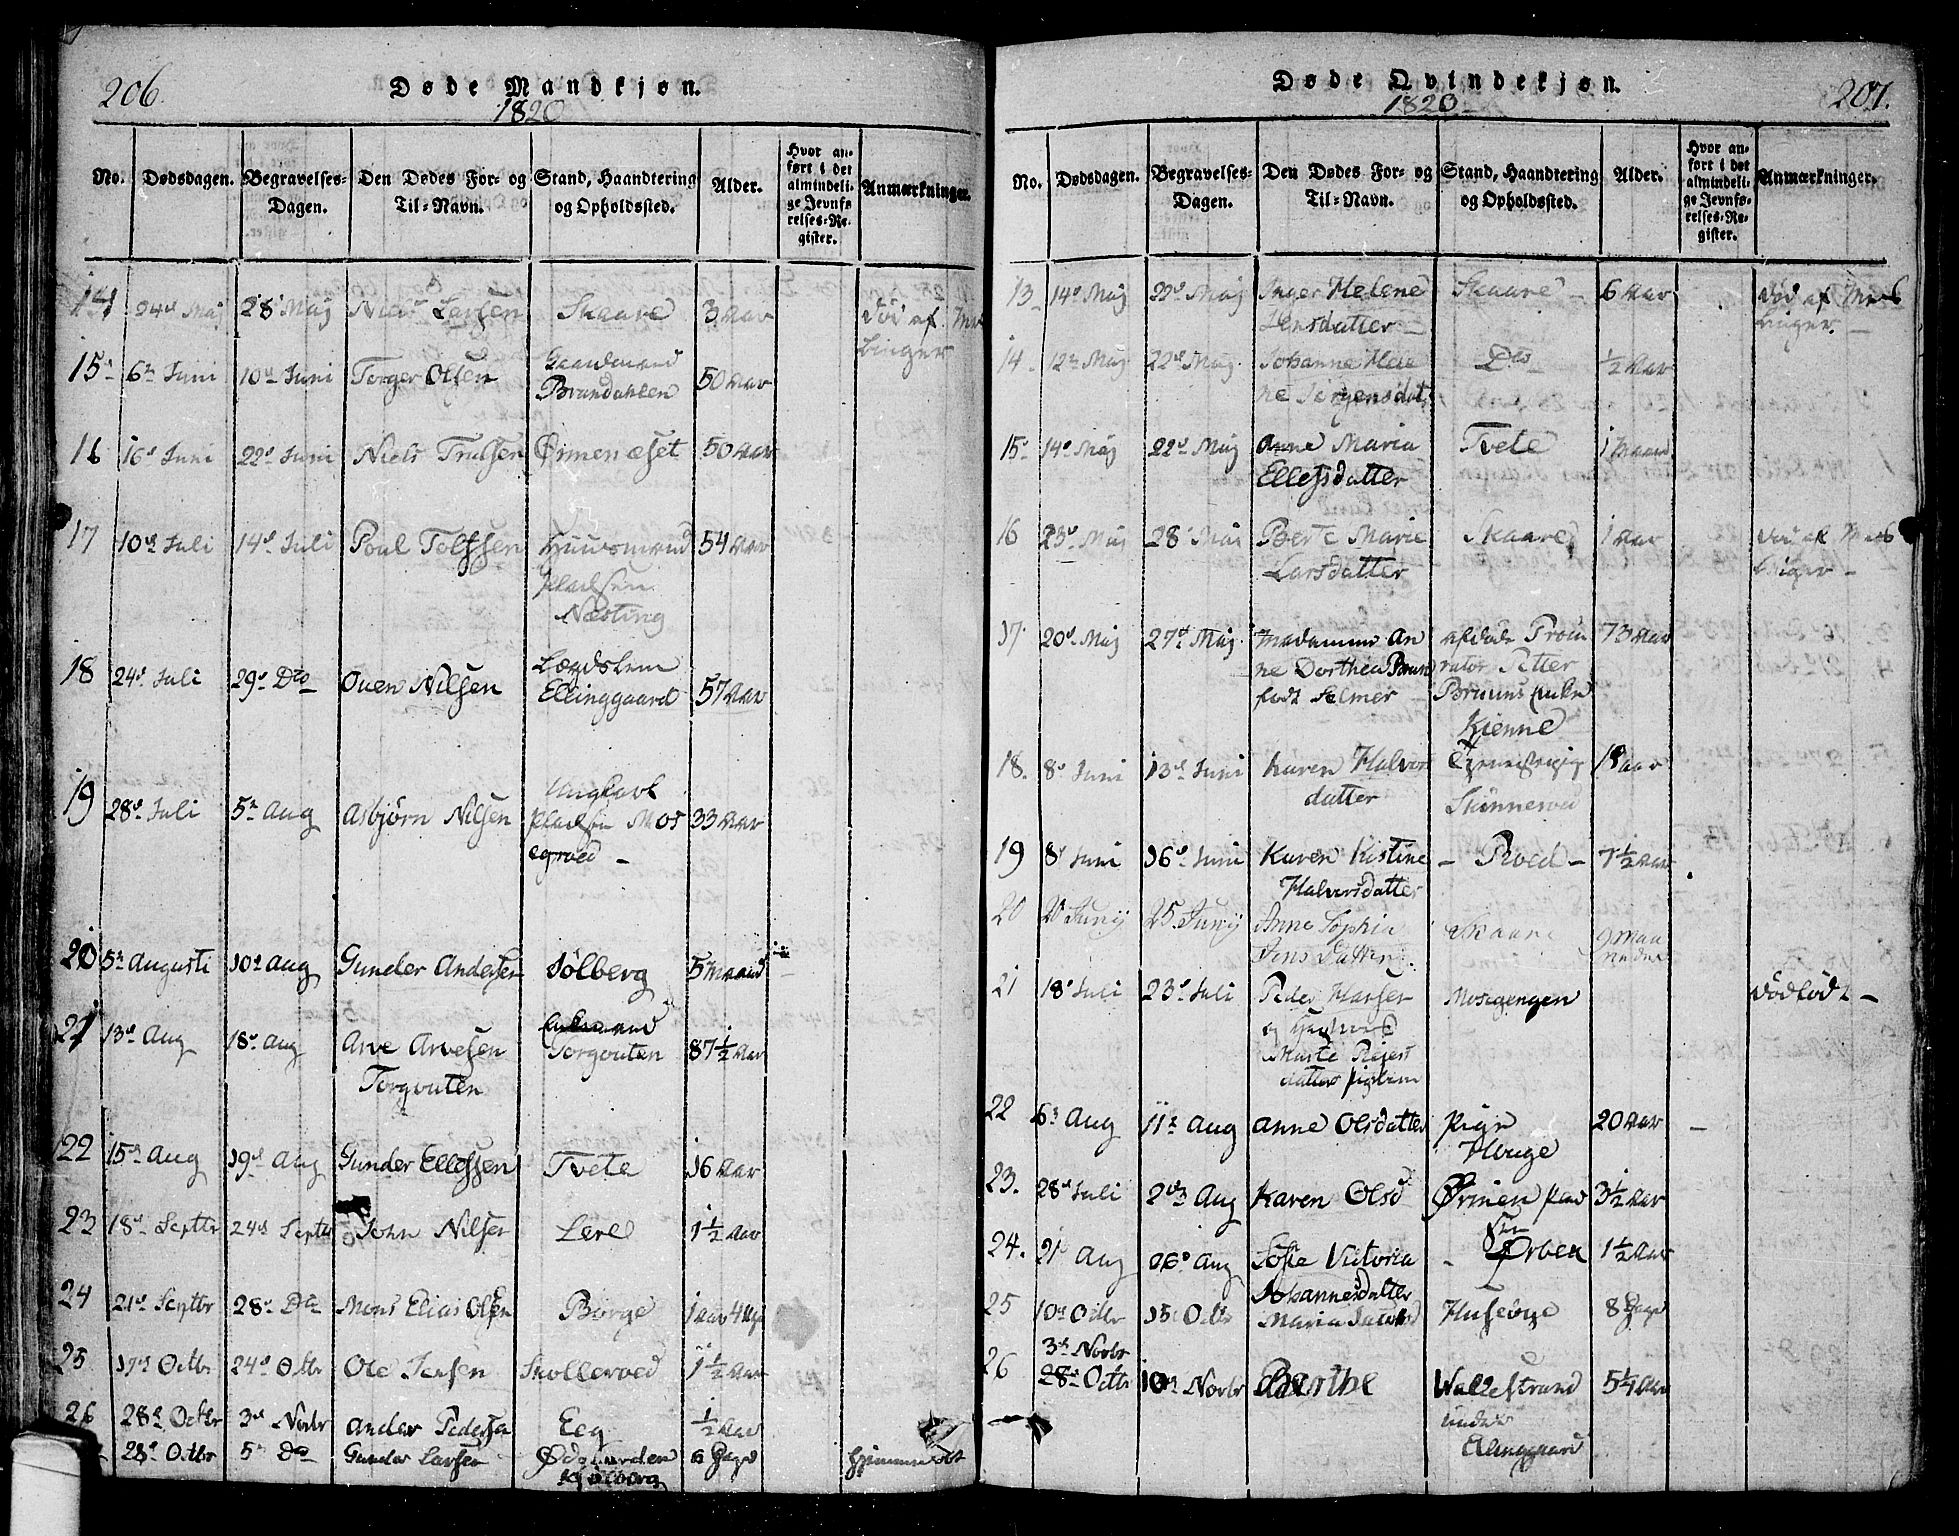 206.
Døde Mandkjøn.
1820
No. Dødsdagen. Begravelses-Dagen. Den Dødes For- og Til-Navn. Stand, Haandtering og Opholdssted. Alder. Hvor anført i det almindelige Jevnførelses-Register. Anmærkninger.
14 24de Maj 28 Maj Niels Larsen Skaare 3 Aar død af Mes
linger
15 6te Juni 10de Juni Torger Olsen Gaardmand
Brandahlen 50 Aar
16 16de Juni 22de Juni Niels Trulsen Ørmenæset 50 Aar
17 10de Juli 14de Juli Poul Huusmand 54 Aar
Pladsen
Næsting
18 24de Juli 29de Dto Ouen Nilsen Lægdslem
Ellinggaard 57 Aar
19 28de Juli 5te Aug Asbjørn Nilsen Ungkarl
Pladsen Mos 33 Aar
egroed –
20 5te Augusti 10de Aug Gunder Andersen Sølberg 5 Maaned
21 13de Aug 18de Aug Arve Arvesen Torgouten 87½ Aar
Torgouten
22 15de Aug 19de Aug Gunder Ellefsen Tvete 16 Aar
23 18de Septbr 24de Septbr John Nilsen Lere 1½ Aar
24 21de Septbr 28de Dto Mons Elias Olsen Borge 1 Aar 4
25 17de Octbr 24de Octbr Ole Jensen Skollerød 1½ Aar
26 28de Octbr 3de Novbr Ander Pedersen Eeg ½ Aar
28de Octbr 5te Dto Gunder Larsen Ødegaarden 6 Dage Hjemmedøbt
Kjølberg
Døde Qvindekjøn.
1820
207.
No. Dødsdagen. Begravelses-Dagen. Den Dødes For- og Til-Navn. Stand, Haandtering og Opholdssted. Alder. Hvor anført i det almindelige Jevnførelses-Register. Anmærkninger.
13 14de Maj 22de Maj Inger Helene Skaare – 6 Aar død af Mes
Jensdatter linger –
14. 12te Maj 22de Maj Johanne Hele Dto ½ Aar
ne Jørgensdat
15 14de Maj 22de Maj Anne Maria Tvete 1 Maaned
Ellefsdatter
16 23de Maj 28 Maj Berte Marie Skaare 1 Aar død af Mes
Larsdatter linger –
17 20de Maj 27de Maj Madamme An afdøde Procu 73 Aar
ne Dorthea Bruun rator Petter
født Selmer Bruuns Enke
Kienne
18. 8de Juni 13de Juni Karen Halvor Tjenistepige 18 Aar
datter Skinnerød
19 8de Juni 16de Juni Karen Kistine – Roed – 7½ Aar
Halvorsdatter
20 20 Junij 25 Junij Anne Sophia Skaare 9 Maa
Jens Datter. neder
21 18de Juli 23de Juli Peder Hansen Mosegengen dødfødt –
og
Marte Pedersdatters Pigebarn
22 6te Aug 11te Aug Anne Olsdatter Pige 20 Aar –
Houge
23. 28de Juli 2den Aug Karen Olsd Ørmen 3½ Aar
24. 21 Aug 26de Aug Sofie Victoria – Ørbek 1½ Aar
Johannesdatter
25 10de Octbr 15de Octbr Maria Jacobsd Huseborge 8 Dage
3de Novbr
26 28de Octbr 10de Novbr Berthe Wallestrand 5¼ Aar
under
Elinggaard